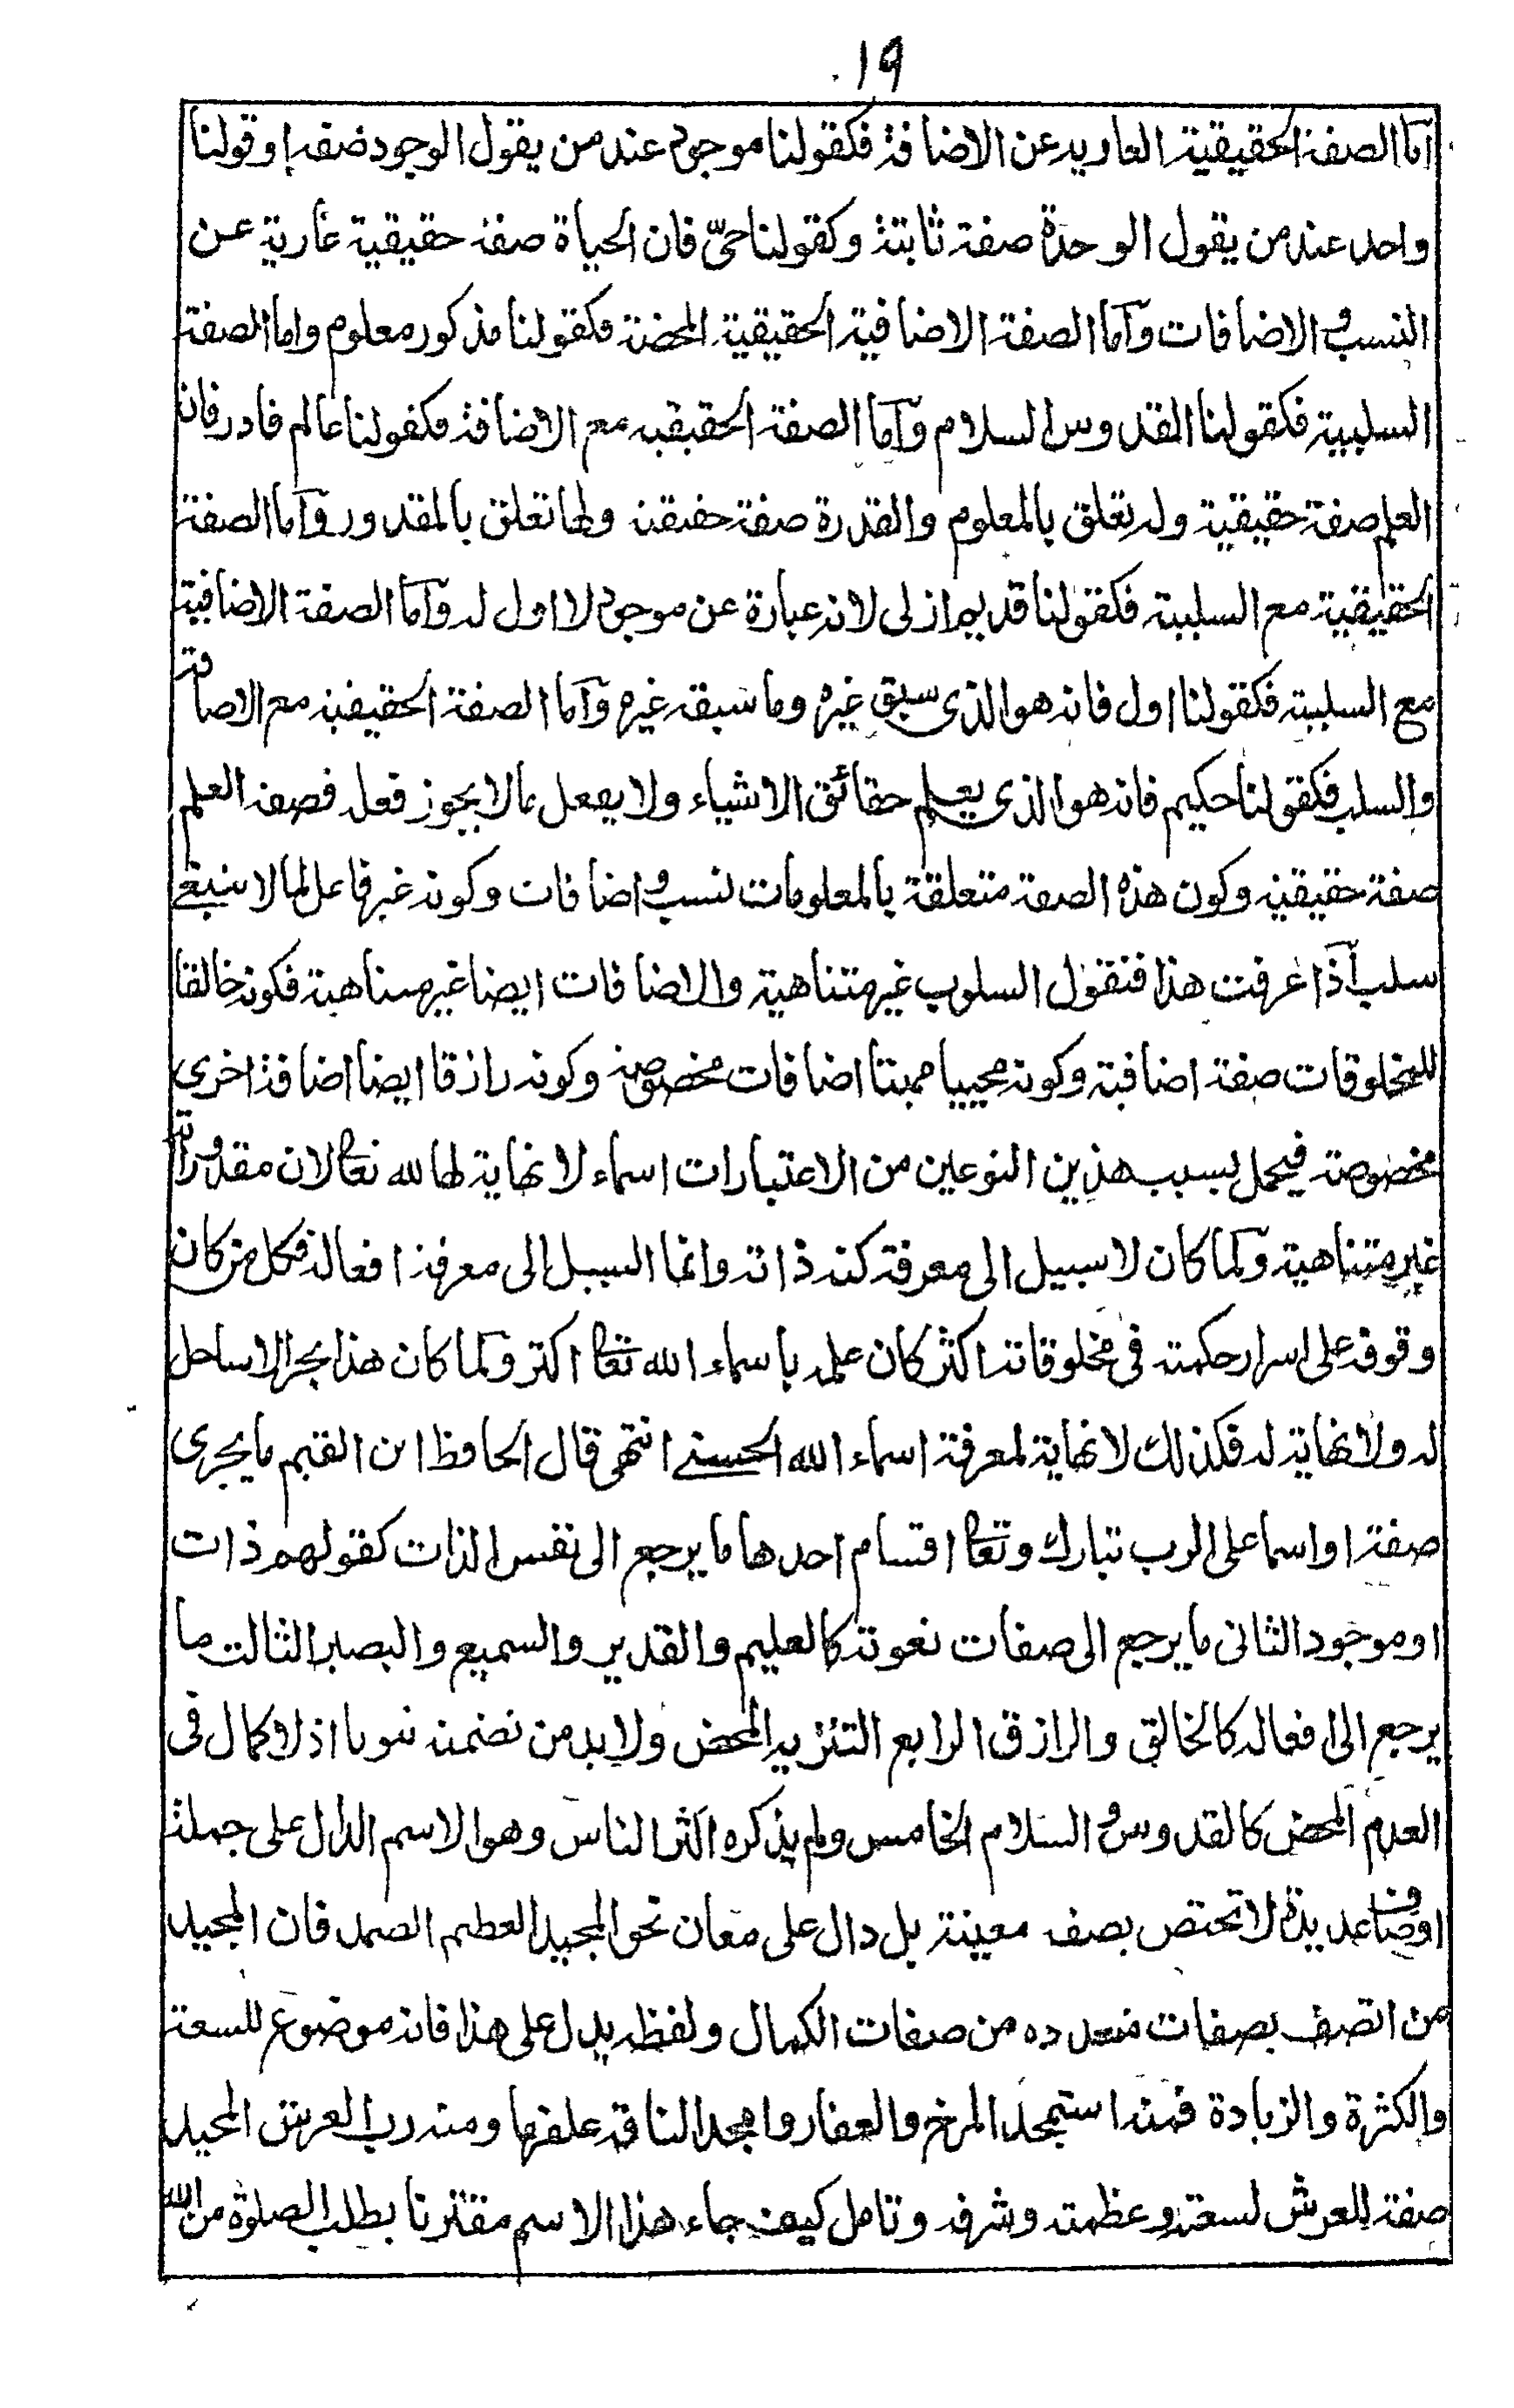 ١٩
اما الصفة الحقيقية العارية عن الاضافة فكقولنا موجود عند من يقول الوجود صفة او قولنا
واحد عند من يقول الوحدة صفة ثابتة وكقولنا حيّ فان الحياة صفة حقيقية عارية عن
النسب و الاضافات واما الصفة الاضافية الحقيقية المحضة فكقولنا مذكور معلوم واما الصفة
السلبية فكقولنا القدوس السلام واما الصفة الحقيقية مع الاضافة فكقولنا عالم قادر فان
العلم صفة حقيقية وله تعلق بالمعلوم والقدرة صفة حقيقة ولها تعلق بالمقدور واما الصفة
الحقيقية مع السلبية فكقولنا قديم ازلى لانه عبارة عن موجود لا اول له واما الصفة الاضافية
مع السلبية فكقولنا اول فانه هو الذى سبق غيره وما سبقه غيره واما الصفة الحقيقية مع الاضافة
والسلب فكقولنا حكيم فانه هو الذى يعلم حقائق الاشياء ولا يفعل ما لا يجوز فعله فصفة العلم
صفة حقيقية وكون هذه الصفة متعلقة بالمعلومات نسب و اضافات وكونه غير فاعل لما لا ينبغى
سلب اذا عرفت هذا فنقول السلوب غير متناهية والاضافات ايضا غير متناهية فكونه خالقا
للمخلوقات صفة اضافية وكونه محييا مميتا اضافات مخصوصة وكونه رازقا ايضا اضافة اخرى
مخصوصة فيحصل بسبب هذين النوعين من الاعتبارات اسماء لا نهاية لها لله تعا لان مقدوراته
غير متناهية ولما كان لا سبيل الى معرفة كنه ذاته وانما السبيل الى معرفة افعاله فكل من كان
وقوفه على اسرار حكمته فى مخلوقاته اكثر كان علمه باسماء الله تعا اكثر ولما كان هذا بحرا لا ساحل
له ولا نهاية له فكذلك لا نهاية لمعرفة اسماء الله الحسنى انتهى قال الحافظ ابن القيم ما يجرى
صفة او اسما على الرب تبارك وتعا اقسام احدها ما يرجع الى نفس الذات كقولهم ذات
او موجود الثانى ما يرجع الى صفات نعوته كالعليم والقدير والسميع والبصير الثالث ما
يرجع الى افعاله كالخالق والرازق الرابع التنزيه المحض ولا بد من تضمنه ثبوتا اذ لا كمال فى
العدم المحض كالقدوس و السلام الخامس ولم يذكره اكثر الناس وهو الاسم الدال على جملة
اوصاف عديدة لا تختص بصفة معينة بل دال على معان نحو المجيد العظيم الصمد فان المجيد
من اتصف بصفات متعدده من صفات الكمال ولفظه يدل على هذا فانه موضوع للسعة
والكثرة والزيادة فمنه استمجد المرخ والعفار وامجد الناقة علفها ومنه رب العرش المجيد
صفة للعرش لسعته و عظمته وشرفه وتامل كيف جاء هذا الاسم مقترنا بطلب الصلوة من الله